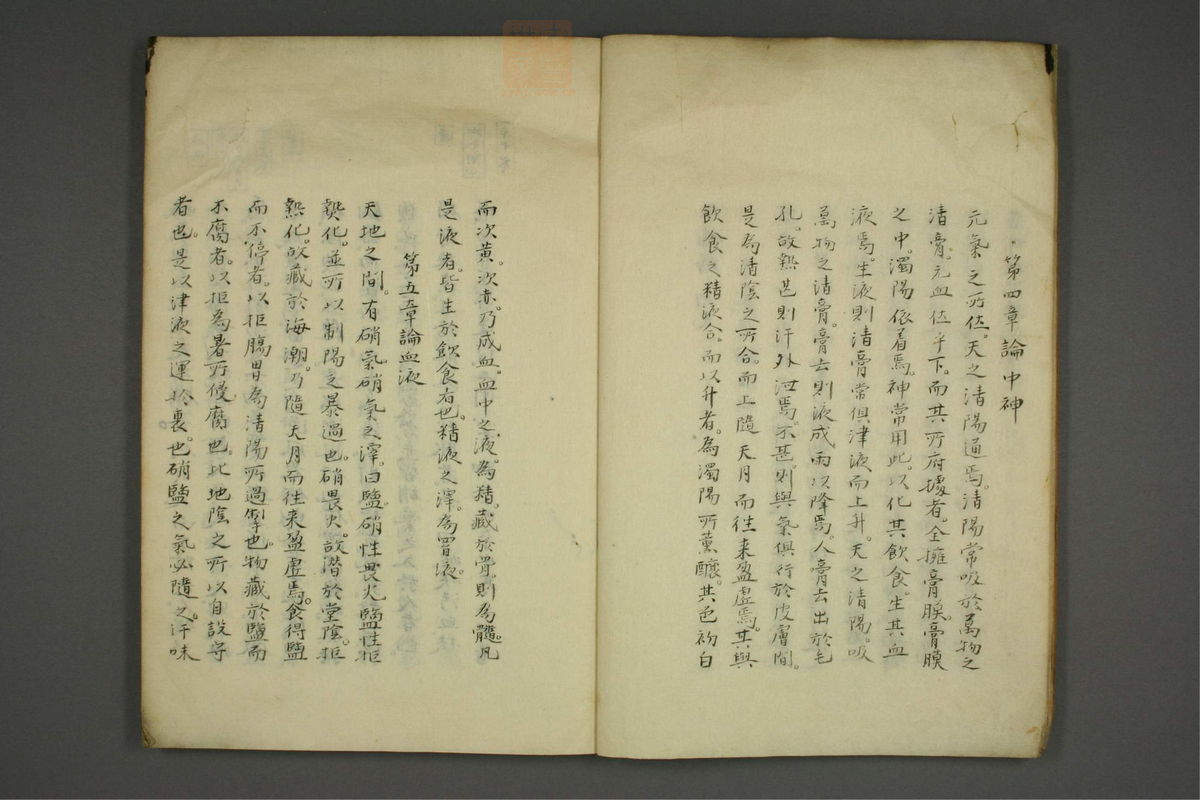 第四章論中神
元氣之所佐。天之清陽通焉。清陽常吸於萬物之
清膏。元血佐乎下。而其所府據者。全擁膏膜。膏膜
之中。濁陽依着焉。神常用此。以化其飲食。生其血
液焉。生液則清膏常俱津液而上升。天之清陽。吸
萬物之清膏。膏去則液成雨以降焉。人膏去出於毛
孔。故熱甚則汗外泄焉。不甚則與氣俱行於皮膚間。
是為清陰之所合。而上隨天月而往来盈虚焉。其與
飲食之精液合。而以升者。為濁陽所薫釀。其色初白
而次黄。次赤。乃成血。血中之液。為精。藏於骨。則為髓。凡
是液者。皆生於飲食者也。精液之澤。為胃液。
第五章論血液
天地之間。有硝氣。硝氣之澤。曰鹽。硝性畏火。鹽性拒
熱化。並所以制陽之暴過也。硝畏火。故潜於堂陰。拒
熱化。故藏於海潮。乃隨天月而往来盈虚焉。食得鹽
而不停者。以拒腸胃為清陽所過也。物藏於鹽而
不腐者。以拒為暑所侵腐也。此地陰之所以自設守
者也。是以津液之運於裏。也硝鹽之氣必隨之。汗味